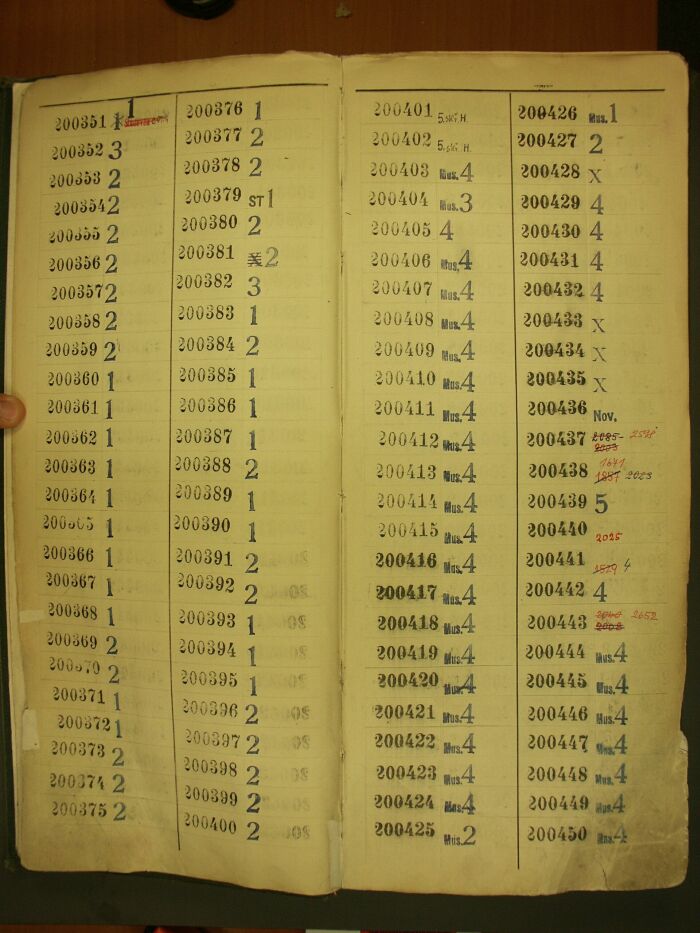 200351 1 1
200352 3
200353 2
200354 2
200355 2
200356 2
200357 2
200358 2
200359 2
200360 1
200361 1
200362 1
200363 1
200364 1
200365 1
200366 1
200367 1
200368 1
200369 2
200370 2
200371 1
200372 1
200373 2
200374 2
200375 2
200376 1
200377 2
200378 2
200379 ST 1
200380 2
200381 X 2
200382 3
200383 1
200384 2
200385 1
200386 1
200387 1
200388 2
200389 1
200390 1
200391 2
200392 2
200393 1
200394 1
200395 1
200396 2
200397 2
200398 2
200399 2
200400 2
200401
200402
200403 Mus. 4
200404 Mus. 3
200405 4
200406 Mus. 4
200407 Mus. 4
200408 Mus. 4
200409 Mus. 4
200410 Mus. 4
200411 Mus. 4
200412 Mus. 4
200413 Mus. 4
200414 Mus. 4
200415 Mus. 4
200416 Mus. 4
200417 Mus. 4
200418 Mus. 4
200419 Mus. 4
200420 Mus. 4
200421 Mus. 4
200422 Mus. 4
200423 Mus. 4
200424 Mus. 4
200425 Mus. 2
200426 Mus. 1
200427 2
200428 X
200429 4
200430 4
200431 4
200432 4
200433 X
200434 X
200435 X
200436 Nov.
200437
200438 1887 2023
200439 5
200440 2025
200441 1529 4
200442 4
200443 2652
200444 Mus. 4
200445 Mus. 4
200446 Mus. 4
200447 Mus. 4
200448 Mus. 4
200449 Mus. 4
200450 Mus. 4